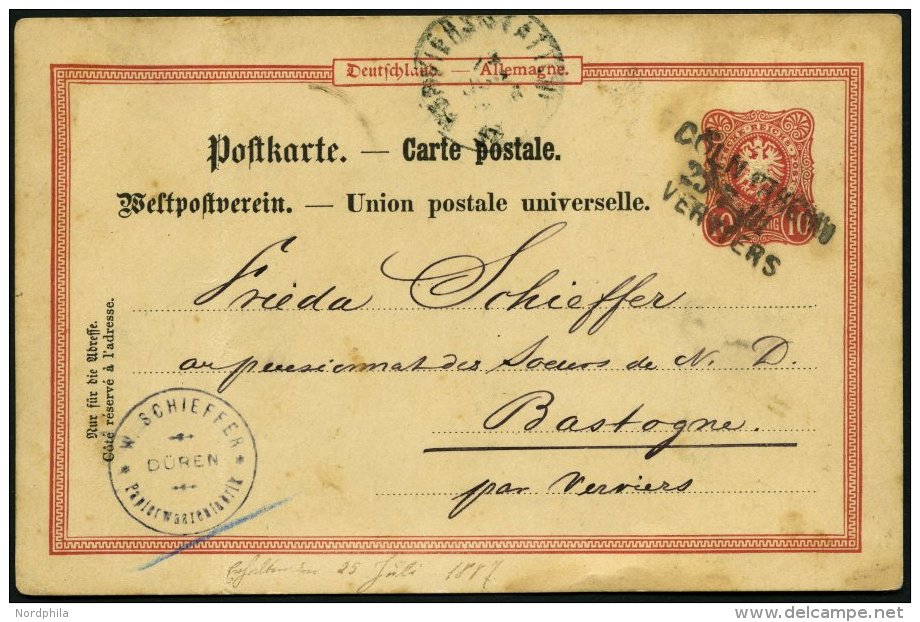 Deutschland — Allemagne.
Postkarte. — Carte postale.
Weltpostverein. — Union postale universelle.
CÖLN
VERVIERS
10 10
Frieda Schieffer
au pensionnat des Soeurs de N. D.
Bastogne.
par Verviers
Nur für die Adresse.
Côté réservé à l'adresse.
W. SCHIEFFER
DÜREN
Papierwaarenfabrik
Erhalten den 25 Juli 1887
Nordphila
delcampe.net